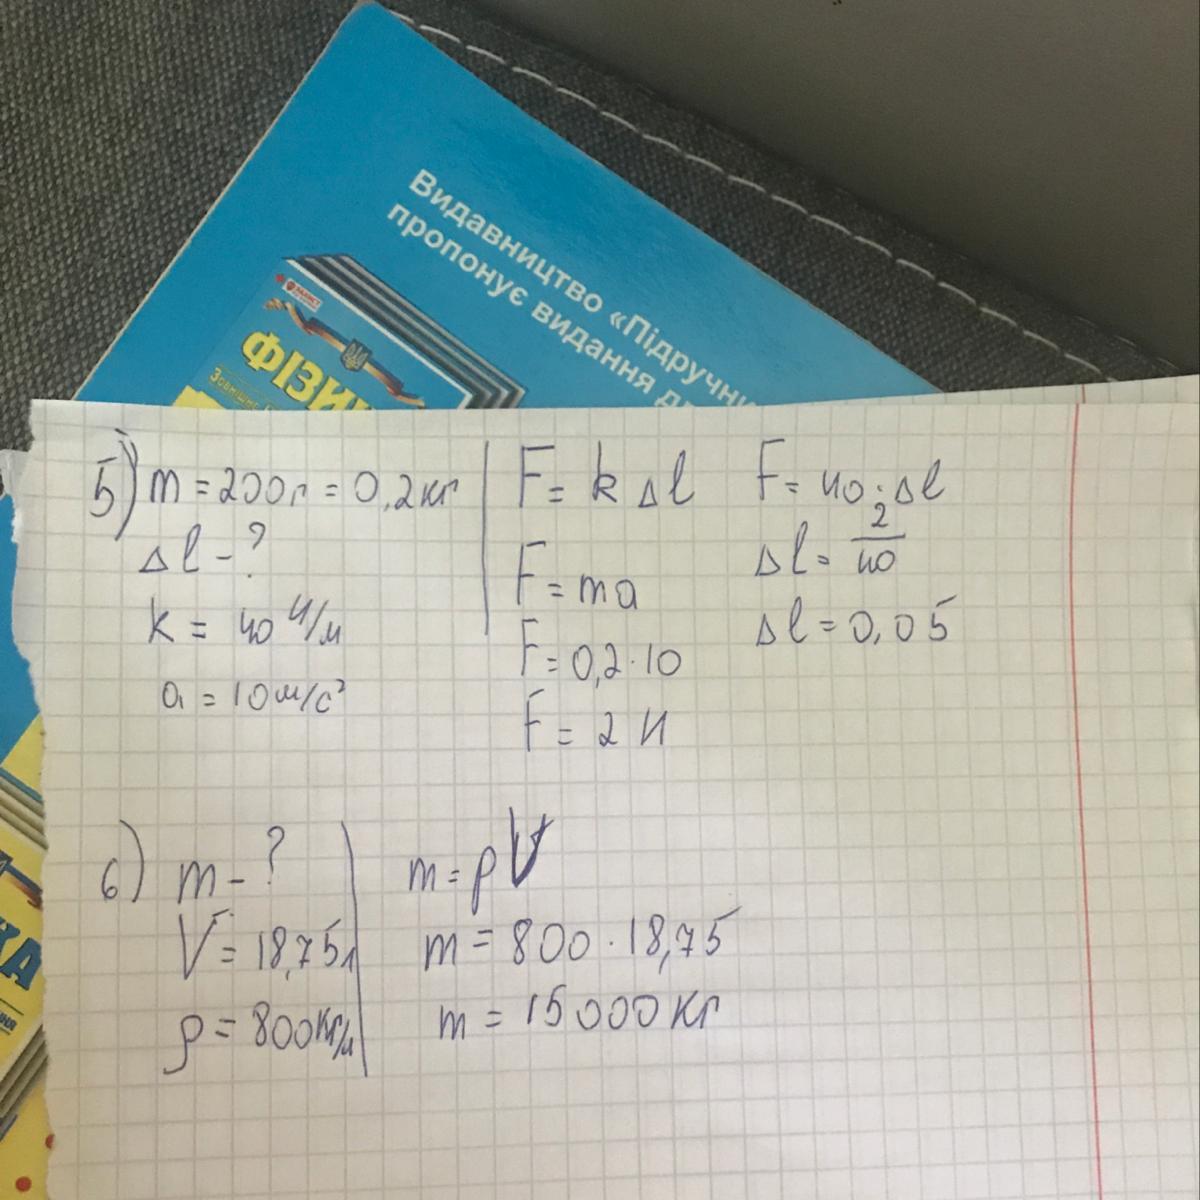 Видавництво «Підручни
пропонує видання д
ФІЗИ
5) m = 200г = 0,2кг
Δl - ?
k = 40 Н/м
a = 10 м/с²
F = k Δl
F = ma
F = 0,2·10
F = 2 Н
F = 40·Δl
Δl = 2/40
Δl = 0,05
6) m - ?
V = 18,75л
ρ = 800кг/м
m = ρV
m = 800 · 18,75
m = 15000кг